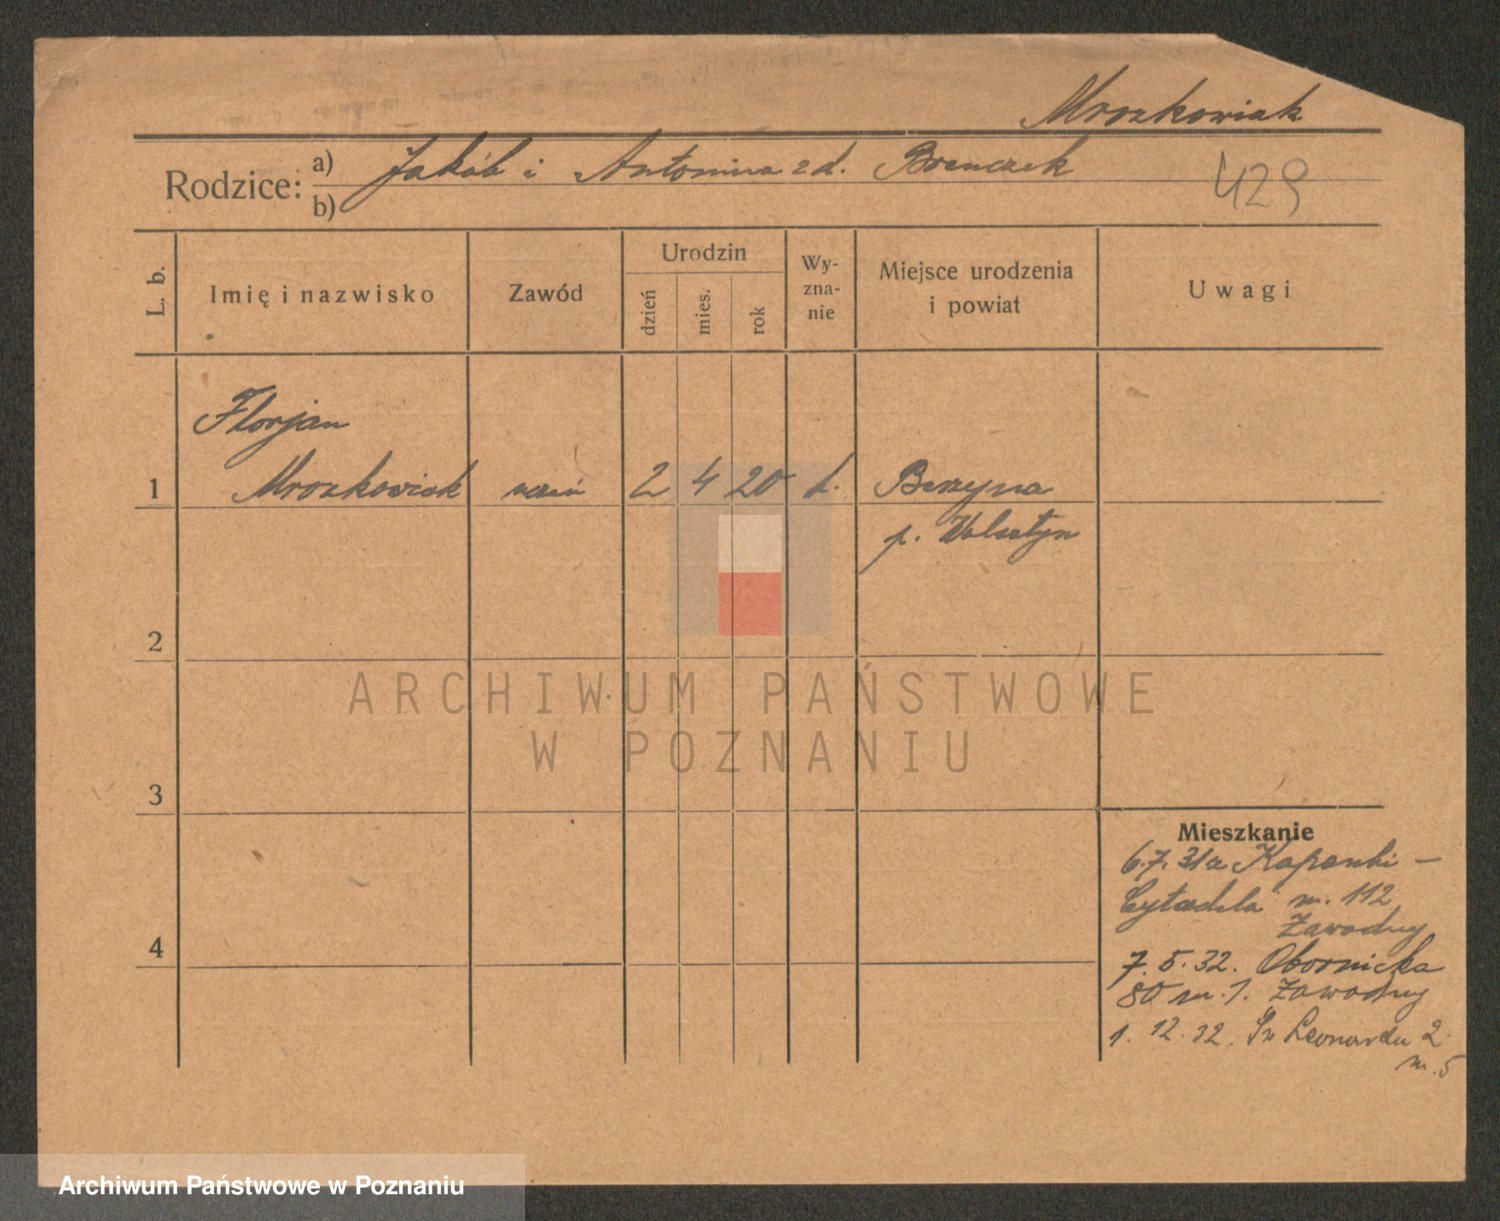 Mrozkowiak
Rodzice: a) Jakób i Antonina z d. Brenczek
b)
429
L. b.
Imię i nazwisko
Zawód
Urodzin
dzień
mies.
rok
Wy-
zna-
nie
Miejsce urodzenia
i powiat
Uwagi
Florjan
1 Mrozkowiak uczeń 2 4 20 Berzyna
p. Wolsztyn
2
3
4
Mieszkanie
6.7.31 z Kaponki –
Cytadela m. 112
Zawodny
7.5.32. Obornicka
80 m. 1. Zawodny
1.12.32. Św Leonarda 2
m. 5
ARCHIWUM PAŃSTWOWE
W POZNANIU
Archiwum Państwowe w Poznaniu